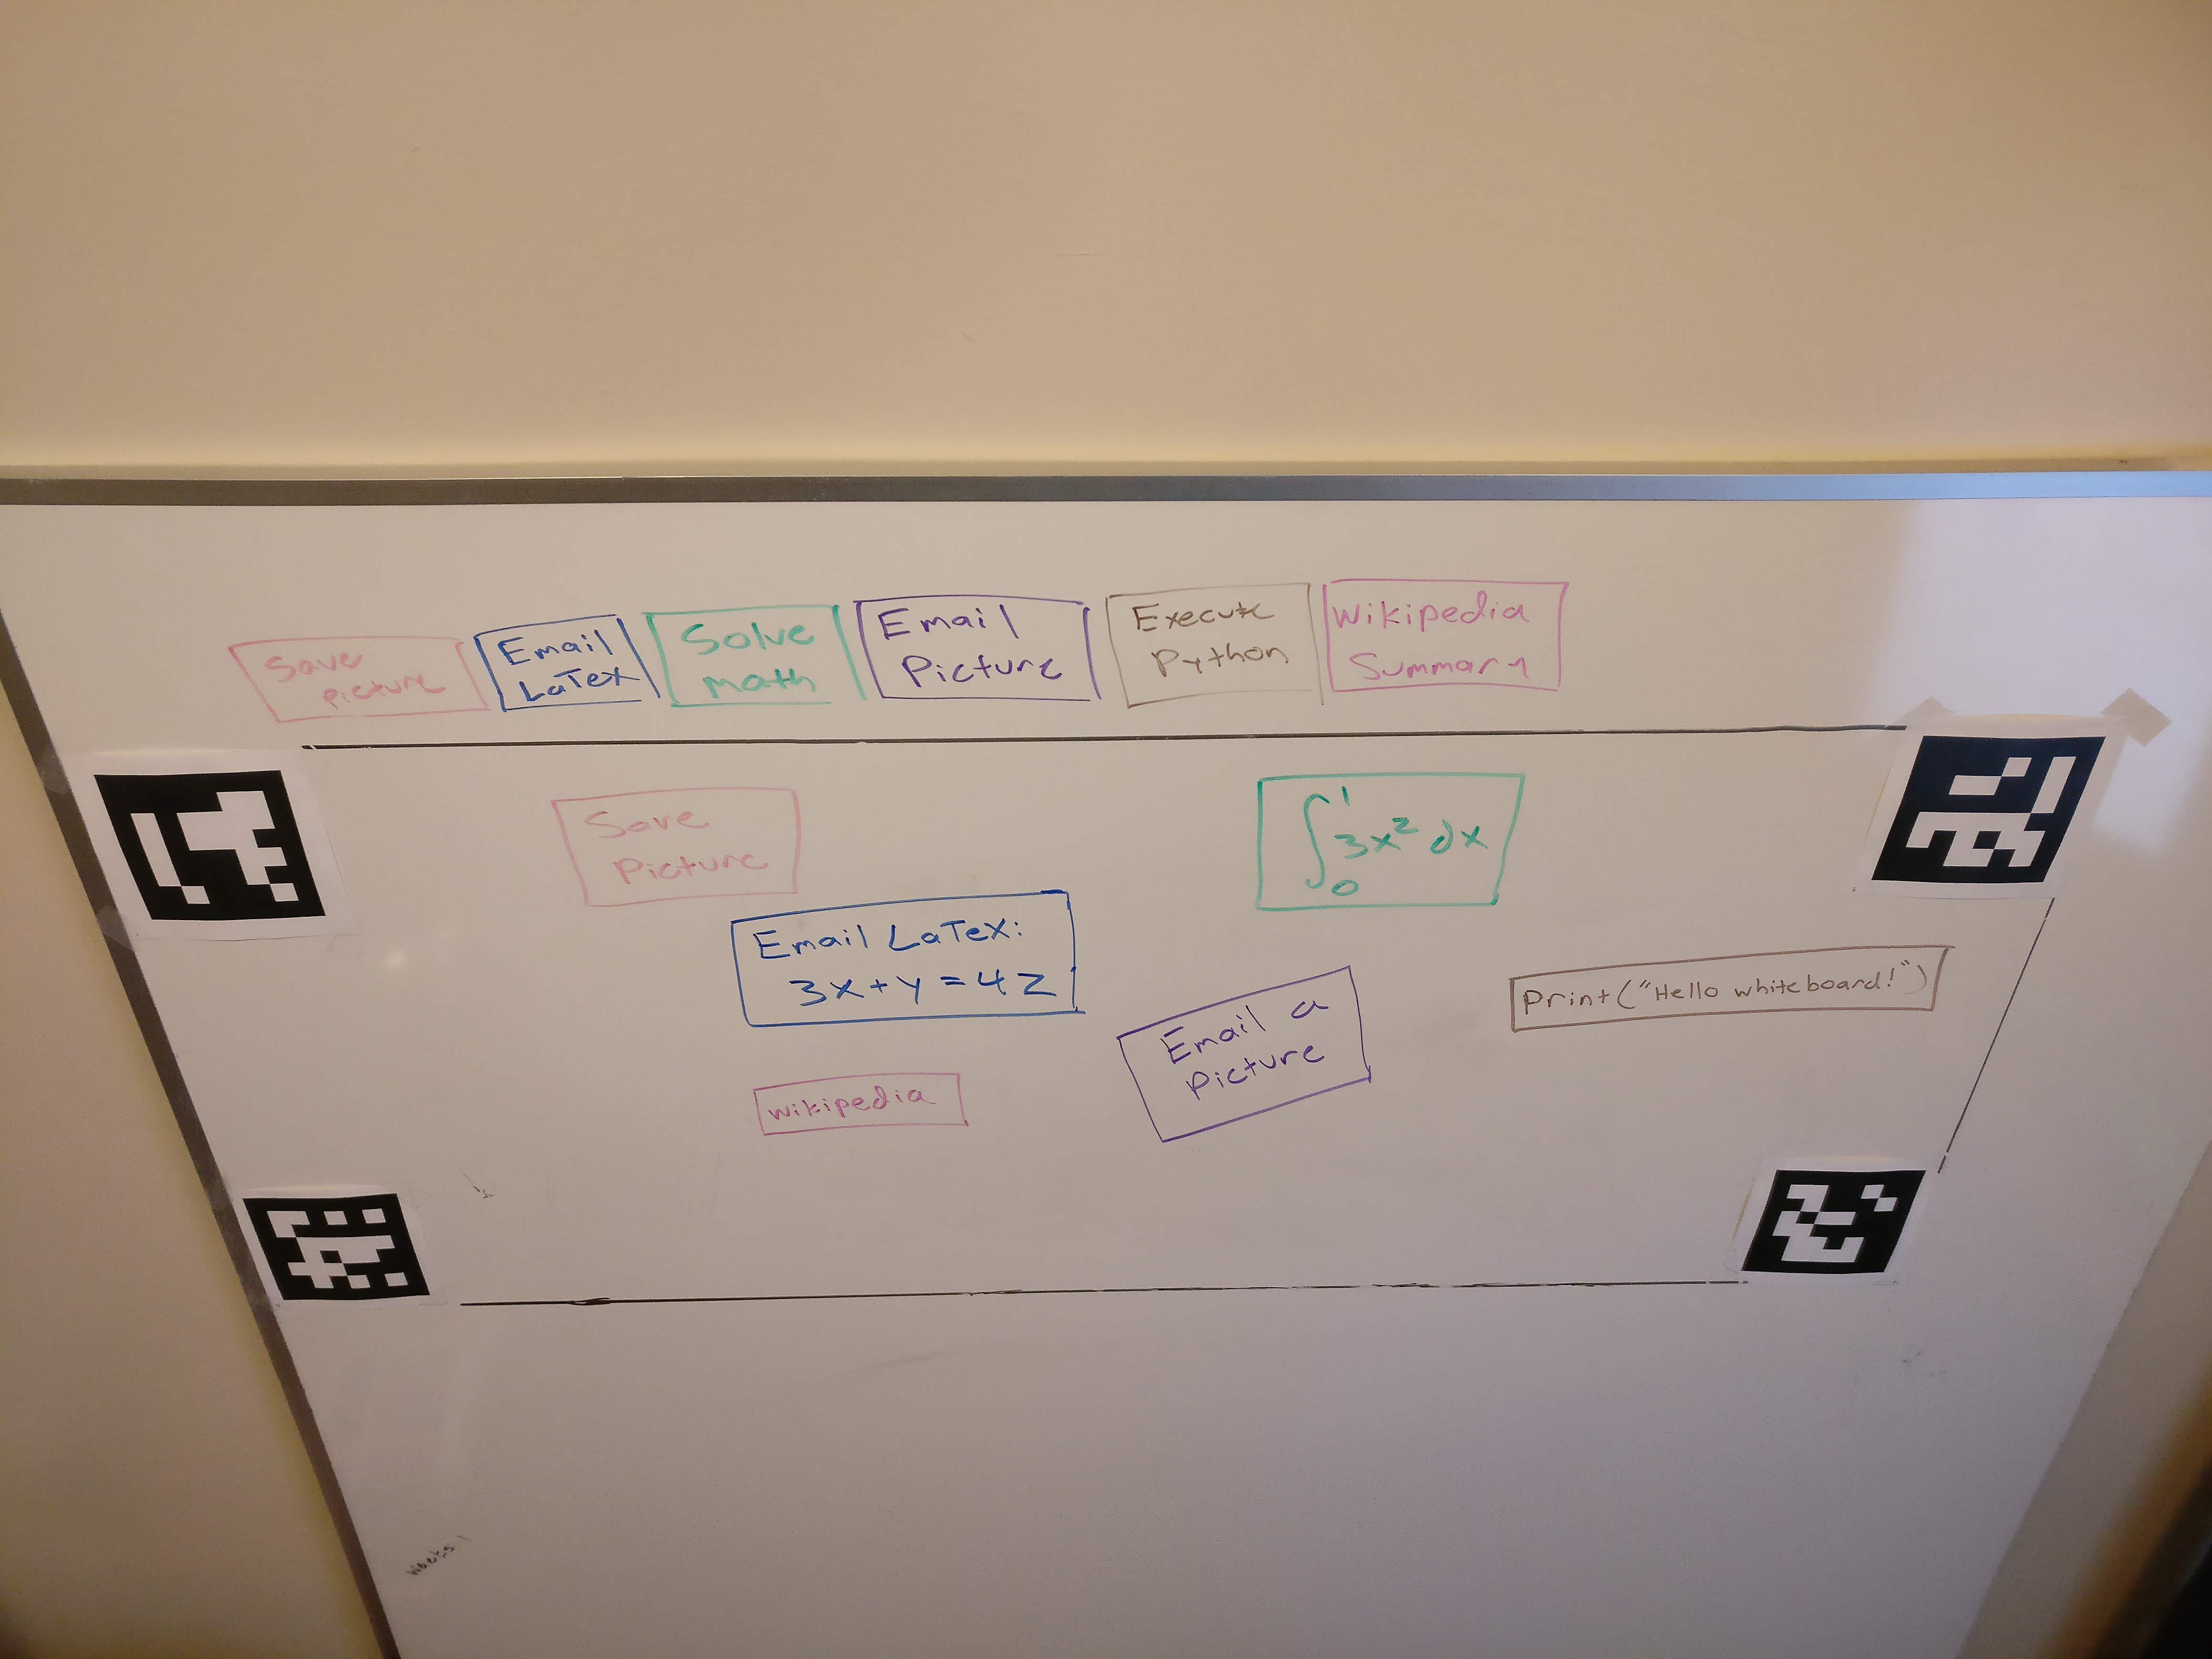 Save
Picture
Email
LaTex
Solve
math
Email
Picture
Execute
Python
Wikipedia
Summary
Save
Picture
∫₀¹ 3x² dx
Email LaTex:
3x+y=4z
Print("Hello whiteboard!")
Email a
Picture
wikipedia